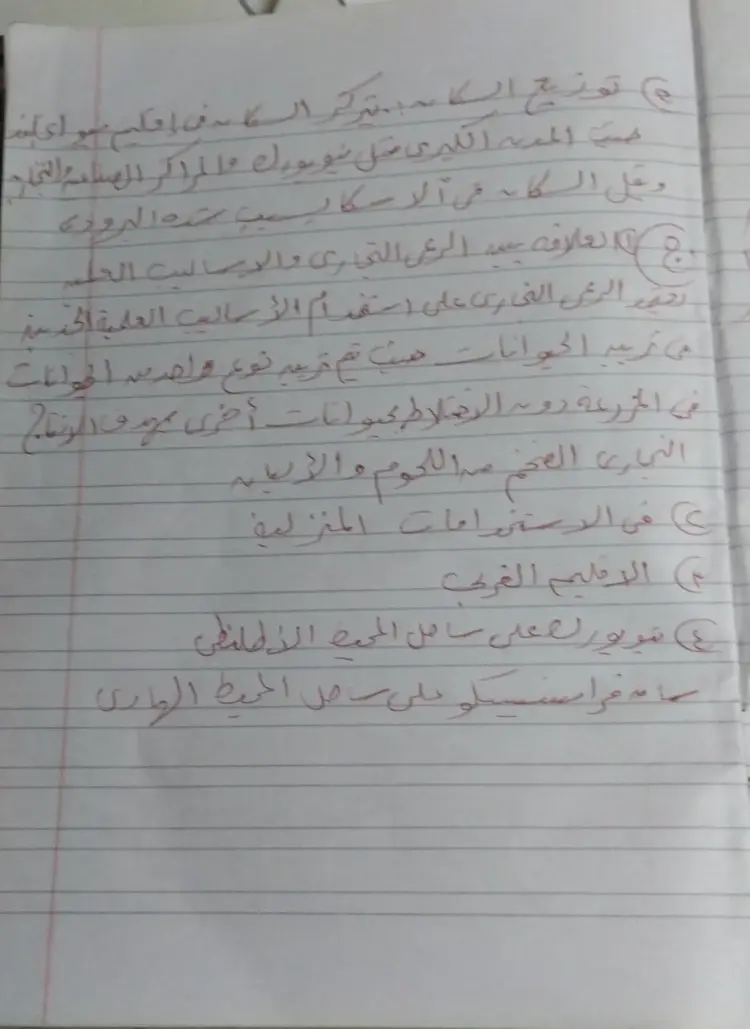 ٥) توزيع السكان: يتركز السكان في إقليم نيو إنجلند
حيث المدن الكبرى مثل نيويورك والمراكز الصناعية والتجارية
ويقل السكان في ألاسكا بسبب شدة البرودة
ج) ١) العلاقة بين الرعي التجاري والأساليب العلمية
يعتمد الرعي التجاري على استخدام الأساليب العلمية الحديثة
في تربية الحيوانات حيث تتم تربية نوع واحد من الحيوانات
في المزرعة دون الاختلاط بحيوانات أخرى بهدف الإنتاج
التجاري الضخم من اللحوم والألبان
٢) في الاستخدامات المنزلية
٣) الاقليم الغربي
٤) نيويورك على ساحل المحيط الأطلنطي
سان فرانسيسكو على ساحل المحيط الهادي